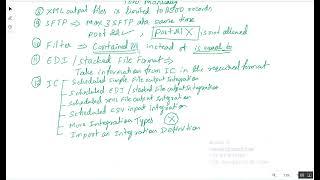 Tool Manually
⑧ XML output files is limited to 10000 records
⑨ SFTP → Max 3 SFTP at a same time
Port 22 ✓, Port 21 X is not allowed
⑩ Filter → Contained in instead of is equal to
⑪ EDI / stacked File Format →
Take information from IC in the required format
⑫ IC
Scheduled Simple File output Integration
Scheduled EDI / stacked File output Integration
Scheduled XML File output Integration
Scheduled CSV input integration
More Integration Types X
Import an Integration Definition